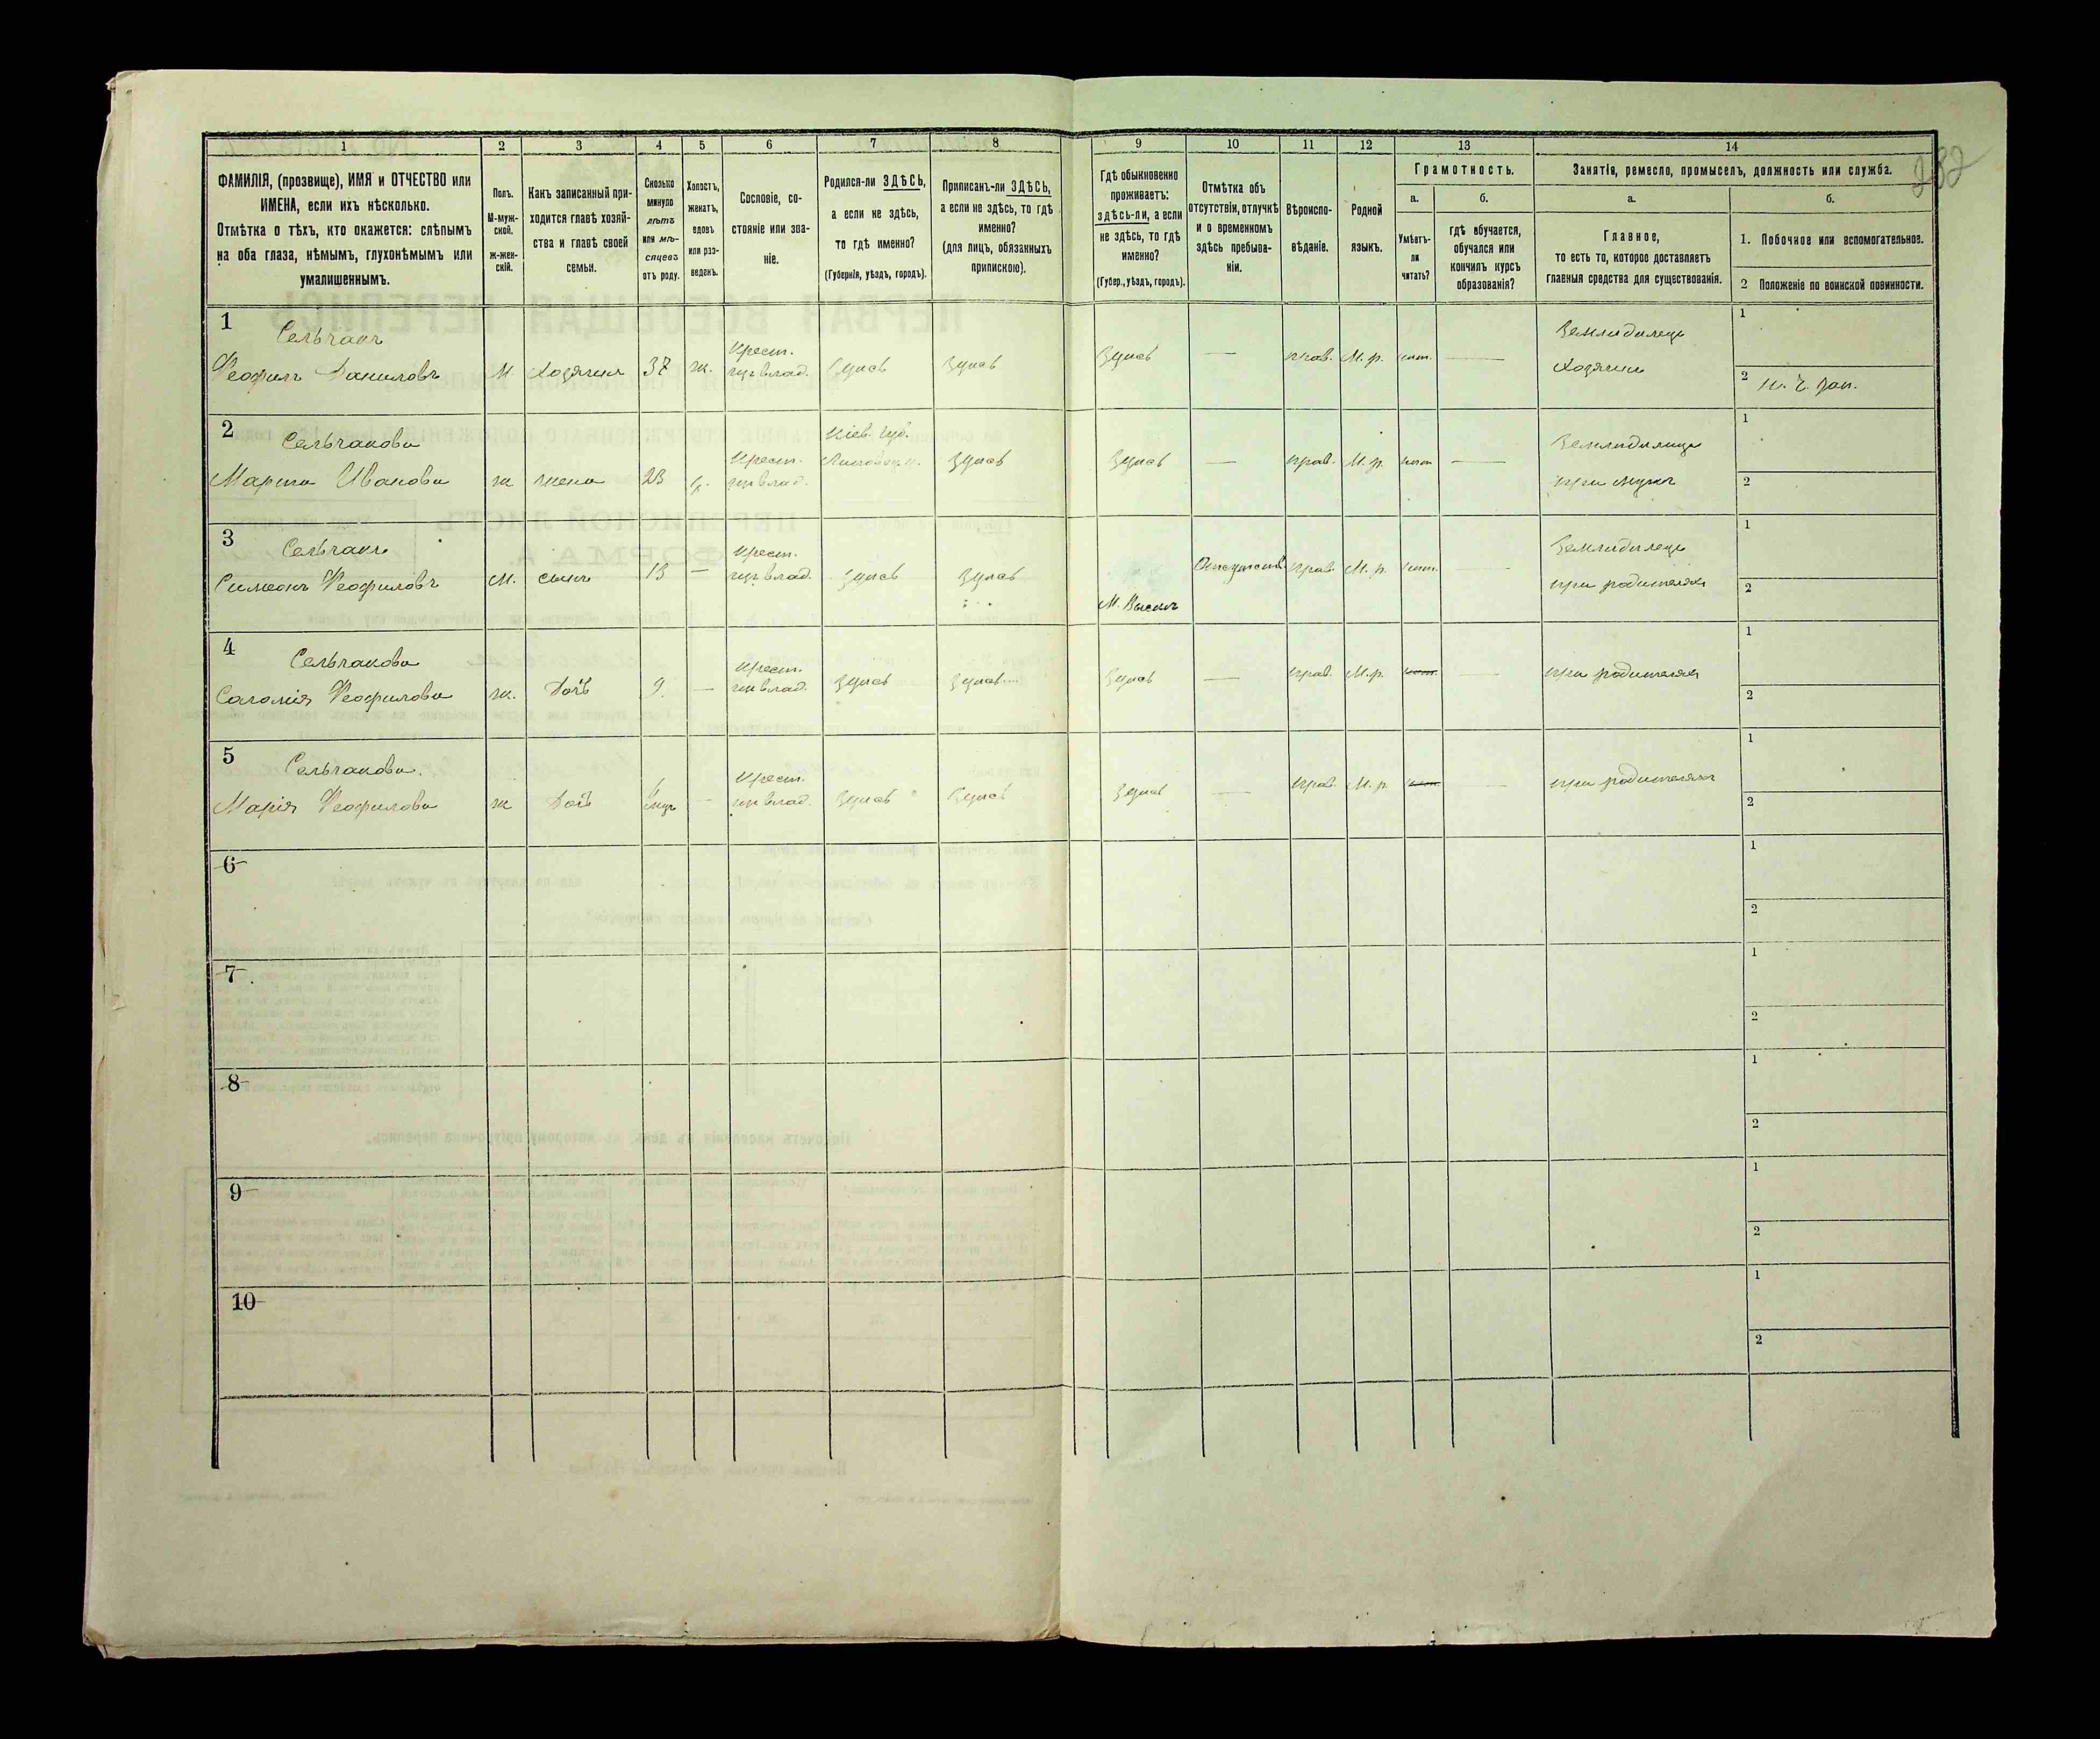 1 2 3 4 5 6 7 8 9 10 11 12 13 14
ФАМИЛІЯ, (прозвище), ИМЯ и ОТЧЕСТВО или
ИМЕНА, если ихъ нѣсколько.
Отмѣтка о тѣхъ, кто окажется: слѣпымъ
на оба глаза, нѣмымъ, глухонѣмымъ или
умалишеннымъ.
Полъ.
М-муж-
ской.
ж-жен-
скій.
Какъ записанный при-
ходится главѣ хозяй-
ства и главѣ своей
семьи.
Сколько
минуло
лѣтъ
или мѣ-
сяцевъ
отъ роду.
Холостъ,
женатъ,
вдовъ
или раз-
веденъ.
Сословіе, со-
стояніе или зва-
ніе.
Родился-ли ЗДѢСЬ,
а если не здѣсь,
то гдѣ именно?
(Губернія, уѣздъ, городъ).
Приписанъ-ли ЗДѢСЬ,
а если не здѣсь, то гдѣ
именно?
(для лицъ, обязанныхъ
припискою).
Гдѣ обыкновенно
проживаетъ:
здѣсь-ли, а если
не здѣсь, то гдѣ
именно?
(Губер., уѣздъ, городъ).
Отмѣтка объ
отсутствіи, отлучкѣ
и о временномъ
здѣсь пребыва-
ніи.
Вѣроиспо-
вѣданіе.
Родной
языкъ.
Грамотность.
а.
Умѣетъ-
ли
читать?
б.
гдѣ обучается,
обучался или
кончилъ курсъ
образованія?
Занятія, ремесло, промыселъ, должность или служба.
а.
Главное,
то есть то, которое доставляетъ
главныя средства для существованія.
б.
1. Побочное или вспомогательное.
2 Положеніе по воинской повинности.
252
1
Сельчакъ
Ѳеофилъ Даниловъ М Хозяинъ 37 ж. Крест. Здѣсь Здѣсь Здѣсь — прав. М. р. —
Земледѣлецъ
Хозяинъ
1
2
2
Сельчакова
Марина Иванова ж жена 23 Крест. Кіев. губ. Здѣсь Здѣсь — прав. М. р. —
при мужѣ
1
2
3
Сельчакъ
Симеонъ Ѳеофиловъ М. сынъ 13 — Крест. Здѣсь Здѣсь прав. М. р.
Земледѣлецъ
при родителяхъ
1
2
4
Сельчакова
Саломія Ѳеофилова ж. Дочь 9. — Крест. Здѣсь Здѣсь Здѣсь — прав. М. р. —
при родителяхъ
1
2
5
Сельчакова.
Марія Ѳеофилова ж Дочь — Крест. Здѣсь Здѣсь Здѣсь — прав. М. р. —
при родителяхъ
1
2
6
1
2
7
1
2
8
1
2
9
1
2
10
1
2